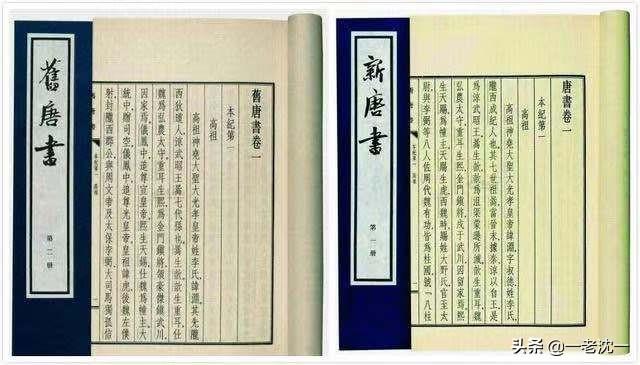 舊唐書
第二册
本紀第一 高祖
舊唐書卷一
本紀第一
高祖
高祖神堯大聖大光孝皇帝姓李氏,諱淵。其先隴
西狄道人,涼武昭王暠七代孫也。暠生歆。歆生重耳,仕
魏爲弘農太守。重耳生熙,爲金門鎮將,領豪傑鎮武川,
因家焉。儀鳳中,追尊宣皇帝。熙生天錫,仕魏爲幢主。大
統中,贈司空。儀鳳中,追尊光皇帝。皇祖諱虎,後魏左僕
射,封隴西郡公,與周文帝及太保李弼、大司馬獨孤信
新唐書
第一册
唐書卷一
本紀第一
高祖
高祖神堯大聖大光孝皇帝諱淵,字叔德,姓李氏,
隴西成紀人也。其七世祖暠,當晉末,據秦、涼以自王,是
爲涼武昭王。暠生歆,歆爲沮渠蒙遜所滅。歆生重耳,魏
弘農太守。重耳生熙,金門鎮將,戍于武川,因留家焉。熙
生天賜,爲幢主。天賜生虎,西魏時,賜姓大野氏,官至太
尉,與李弼等八人佐周代魏有功,皆爲柱國,號八柱
头条 @一老沈一